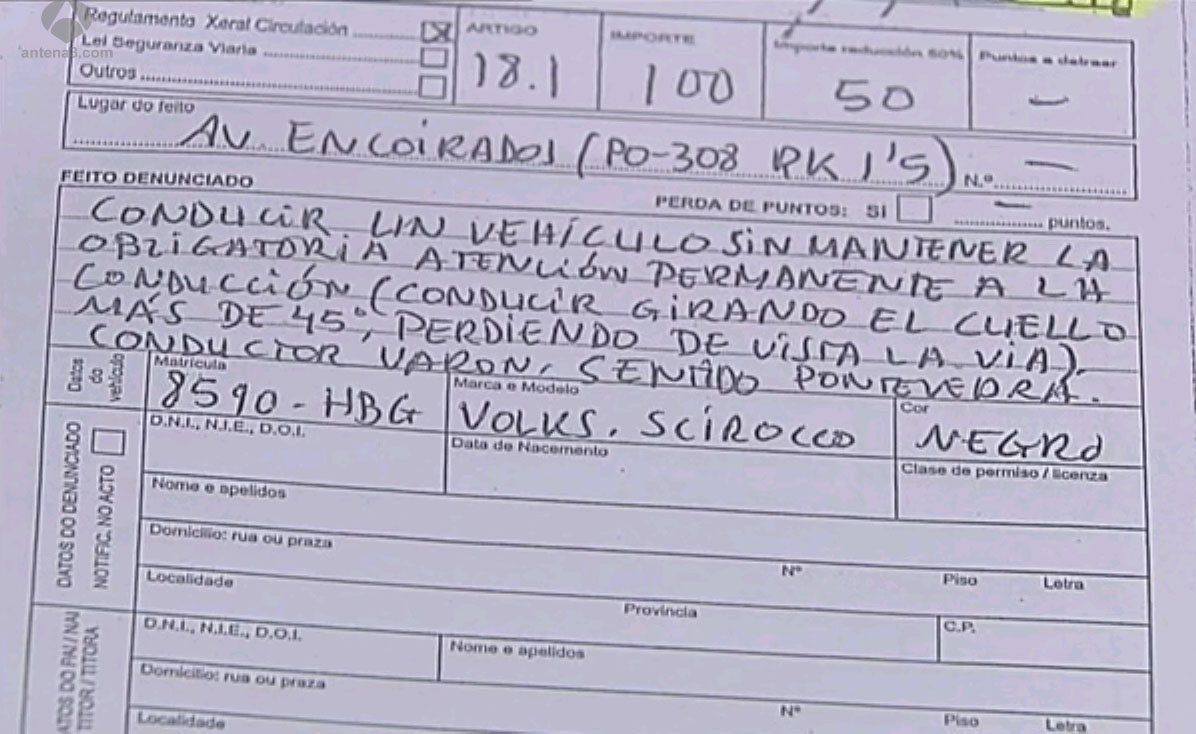 antena3.com
Regulamento Xeral Circulación
Lei Seguranza Viaria
Outros
ARTIGO
18.1
IMPORTE
100
Importe reducción 50%
50
Puntos a detraer
—
Lugar do feito
AV. ENCOIRADOS (PO-308 PK 1'5) N.º —
FEITO DENUNCIADO
PERDA DE PUNTOS: SI — puntos.
CONDUCIR UN VEHÍCULO SIN MANTENER LA
OBLIGATORIA ATENCIÓN PERMANENTE A LA
CONDUCCIÓN (CONDUCIR GIRANDO EL CUELLO
MÁS DE 45º, PERDIENDO DE VISTA LA VIA).
CONDUCTOR VARON, SENTIDO PONTEVEDRA.
Datos
do
vehículo
Matrícula
8590-HBG
Marca e Modelo
VOLKS. SCIROCCO
Cor
NEGRO
DATOS DO DENUNCIADO
NOTIFIC. NO ACTO
D.N.I., N.I.E., D.O.I.
Data de Nacemento
Clase de permiso / licenza
Nome e apelidos
Domicilio: rua ou praza
Nº Piso Letra
Localidade
Provincia
C.P.
DATOS DO PAI / NAI
TITOR / TITORA
D.N.I., N.I.E., D.O.I.
Nome e apelidos
Domicilio: rua ou praza
Nº Piso Letra
Localidade